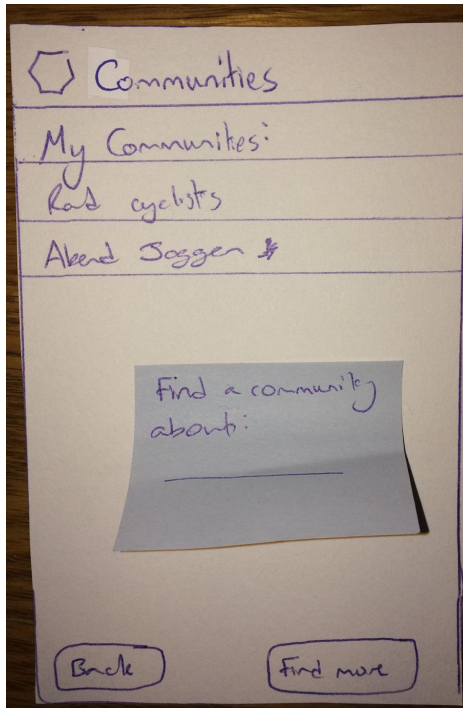 Communities
My Communites:
Road cyclists
Abend Joggen
Find a community
about:
Back
Find more